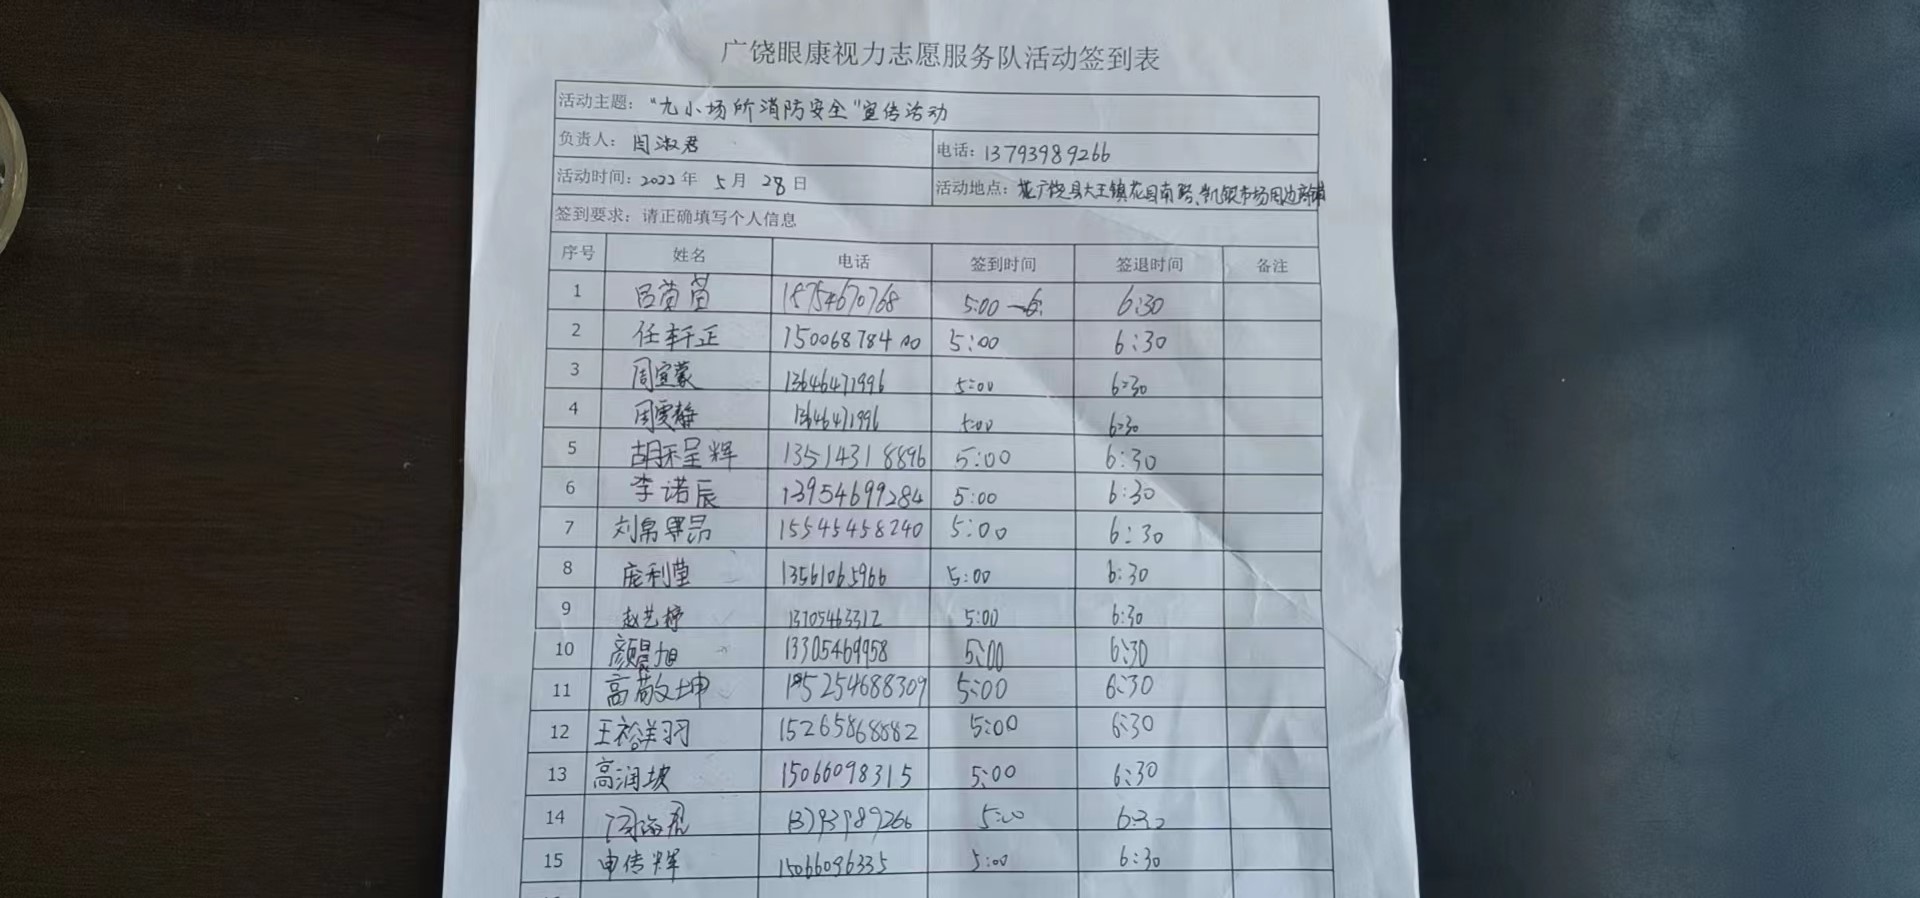 广饶眼康视力志愿服务队活动签到表
活动主题：“九小场所消防安全”宣传活动
负责人：闫淑君 电话：13793989266
活动时间：2022年 5月 28日 活动地点：广饶县大王镇花园南路、凯银市场周边商铺
签到要求：请正确填写个人信息
序号 姓名 电话 签到时间 签退时间 备注
1 吕苗苗 18754670768 5:00 6:30
2 任轩正 15006878400 5:00 6:30
3 周宣蒙 13646471996 5:00 6:30
4 周雯静 13646471996 5:00 6:30
5 胡程辉 13514318896 5:00 6:30
6 李诺辰 13954699284 5:00 6:30
7 15545458240 5:00 6:30
8 庞利莹 13561065966 5:00 6:30
9 赵艺婷 13705463312 5:00 6:30
10 颜晨旭 13305469958 5:00 6:30
11 高敬坤 15254688309 5:00 6:30
12 王裕洋羽 15265868882 5:00 6:30
13 高润坡 15066098315 5:00 6:30
14 13793989266 5:00 6:30
15 申传辉 15066096335 5:00 6:30